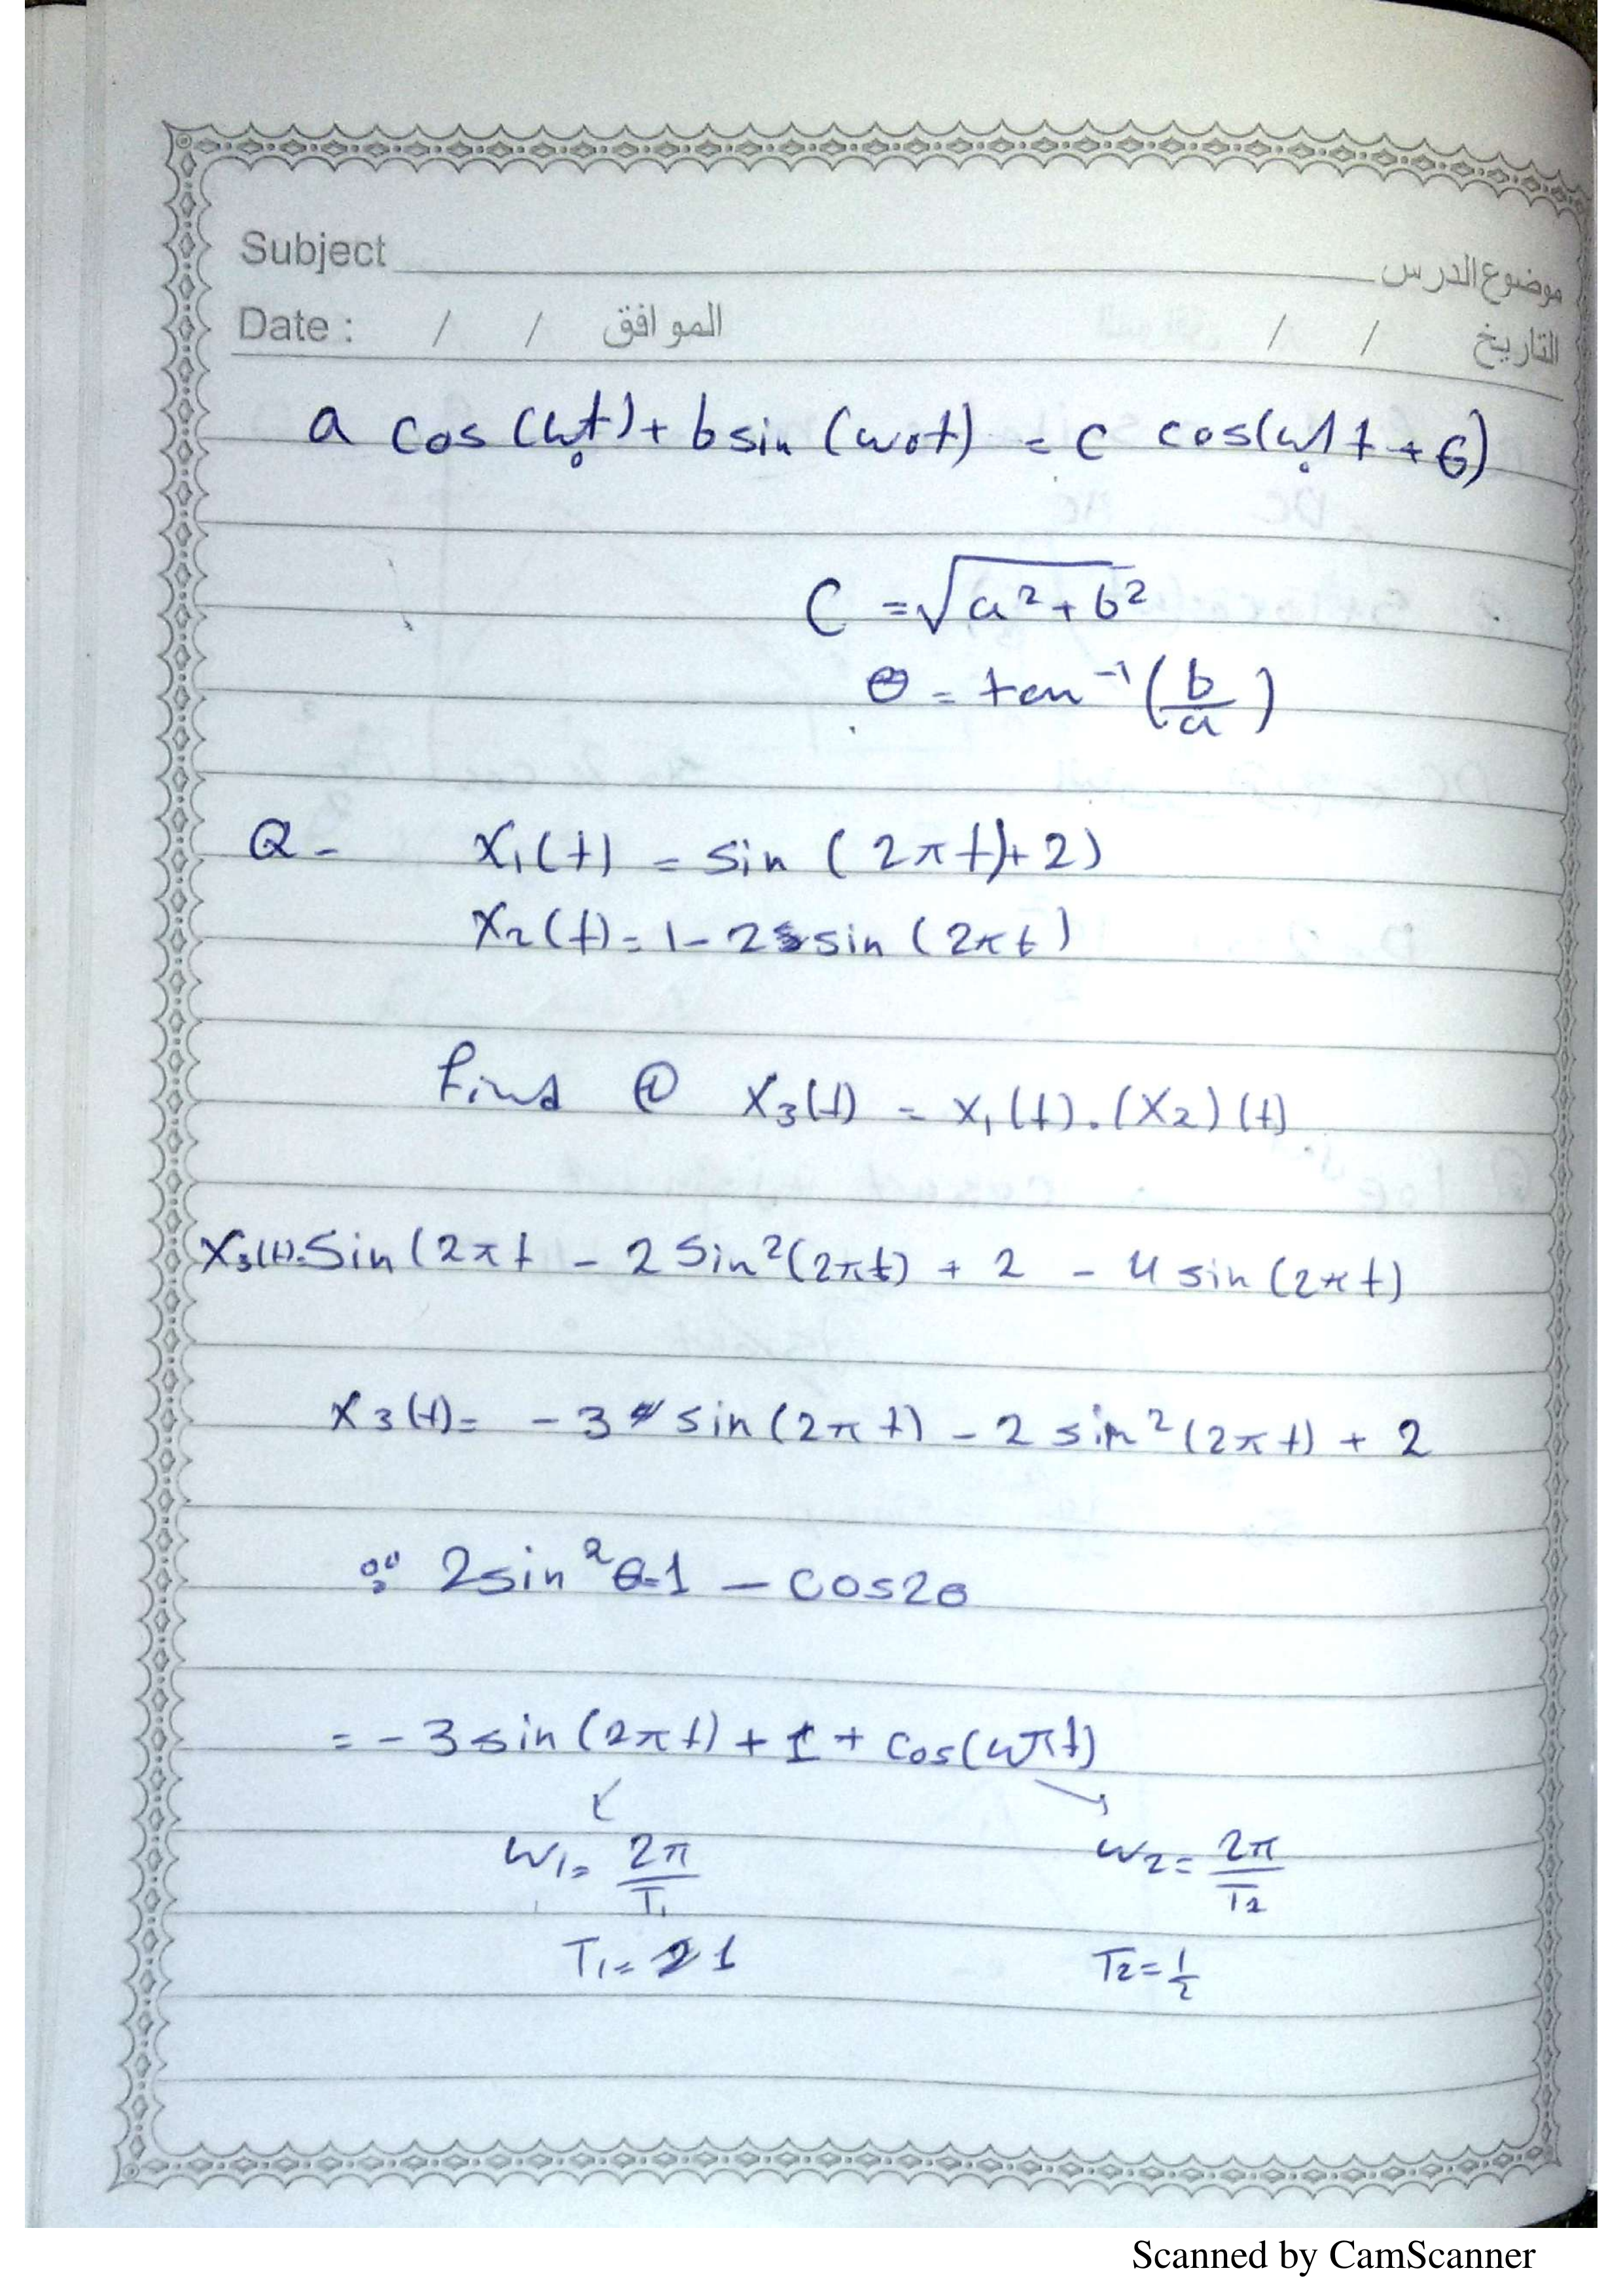 Subject موضوع الدرس
Date : / / الموافق / / التاريخ
a cos(w₀t) + b sin (w₀t) = c cos(w₀t + θ)
C = √a² + b²
θ = tan⁻¹ (b/a)
Q - x₁(t) = sin (2πt)+2)
x₂(t) = 1 - 2 sin (2πt)
find ① x₃(t) = x₁(t) . (x₂)(t)
x₃(t) = Sin(2πt - 2 Sin²(2πt) + 2 - 4 sin (2πt)
x₃(t) = - 3 sin (2πt) - 2 sin²(2πt) + 2
∵ 2sin²θ = 1 - cos2θ
= - 3 sin (2πt) + 1 + cos(4πt)
↙ ↘
w₁ = 2π/T₁ w₂ = 2π/T₂
T₁ = 1 T₂ = 1/2
Scanned by CamScanner